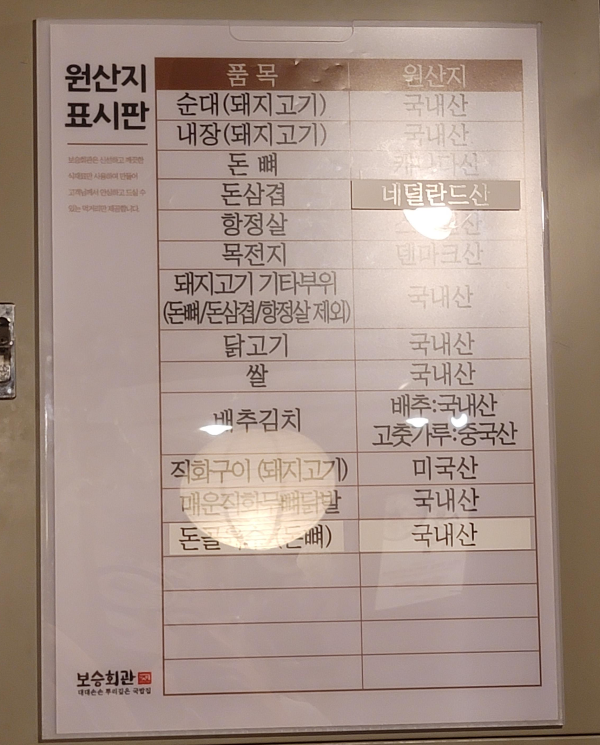 원산지
표시판
보승회관은 신선하고 깨끗한
식재료만 사용하여 만들어
고객님께서 안심하고 드실 수
있는 먹거리만 제공합니다.
품 목 원산지
순대(돼지고기) 국내산
내장(돼지고기) 국내산
돈 뼈 캐나다산
돈삼겹 네덜란드산
항정살
목전지 덴마크산
돼지고기 기타부위
(돈뼈/돈삼겹/항정살 제외) 국내산
닭고기 국내산
쌀 국내산
배추김치 배추:국내산
고춧가루:중국산
직화구이 (돼지고기) 미국산
매운직화무뼈닭발 국내산
(돈뼈) 국내산
보승회관
대대손손 뿌리깊은 국밥집